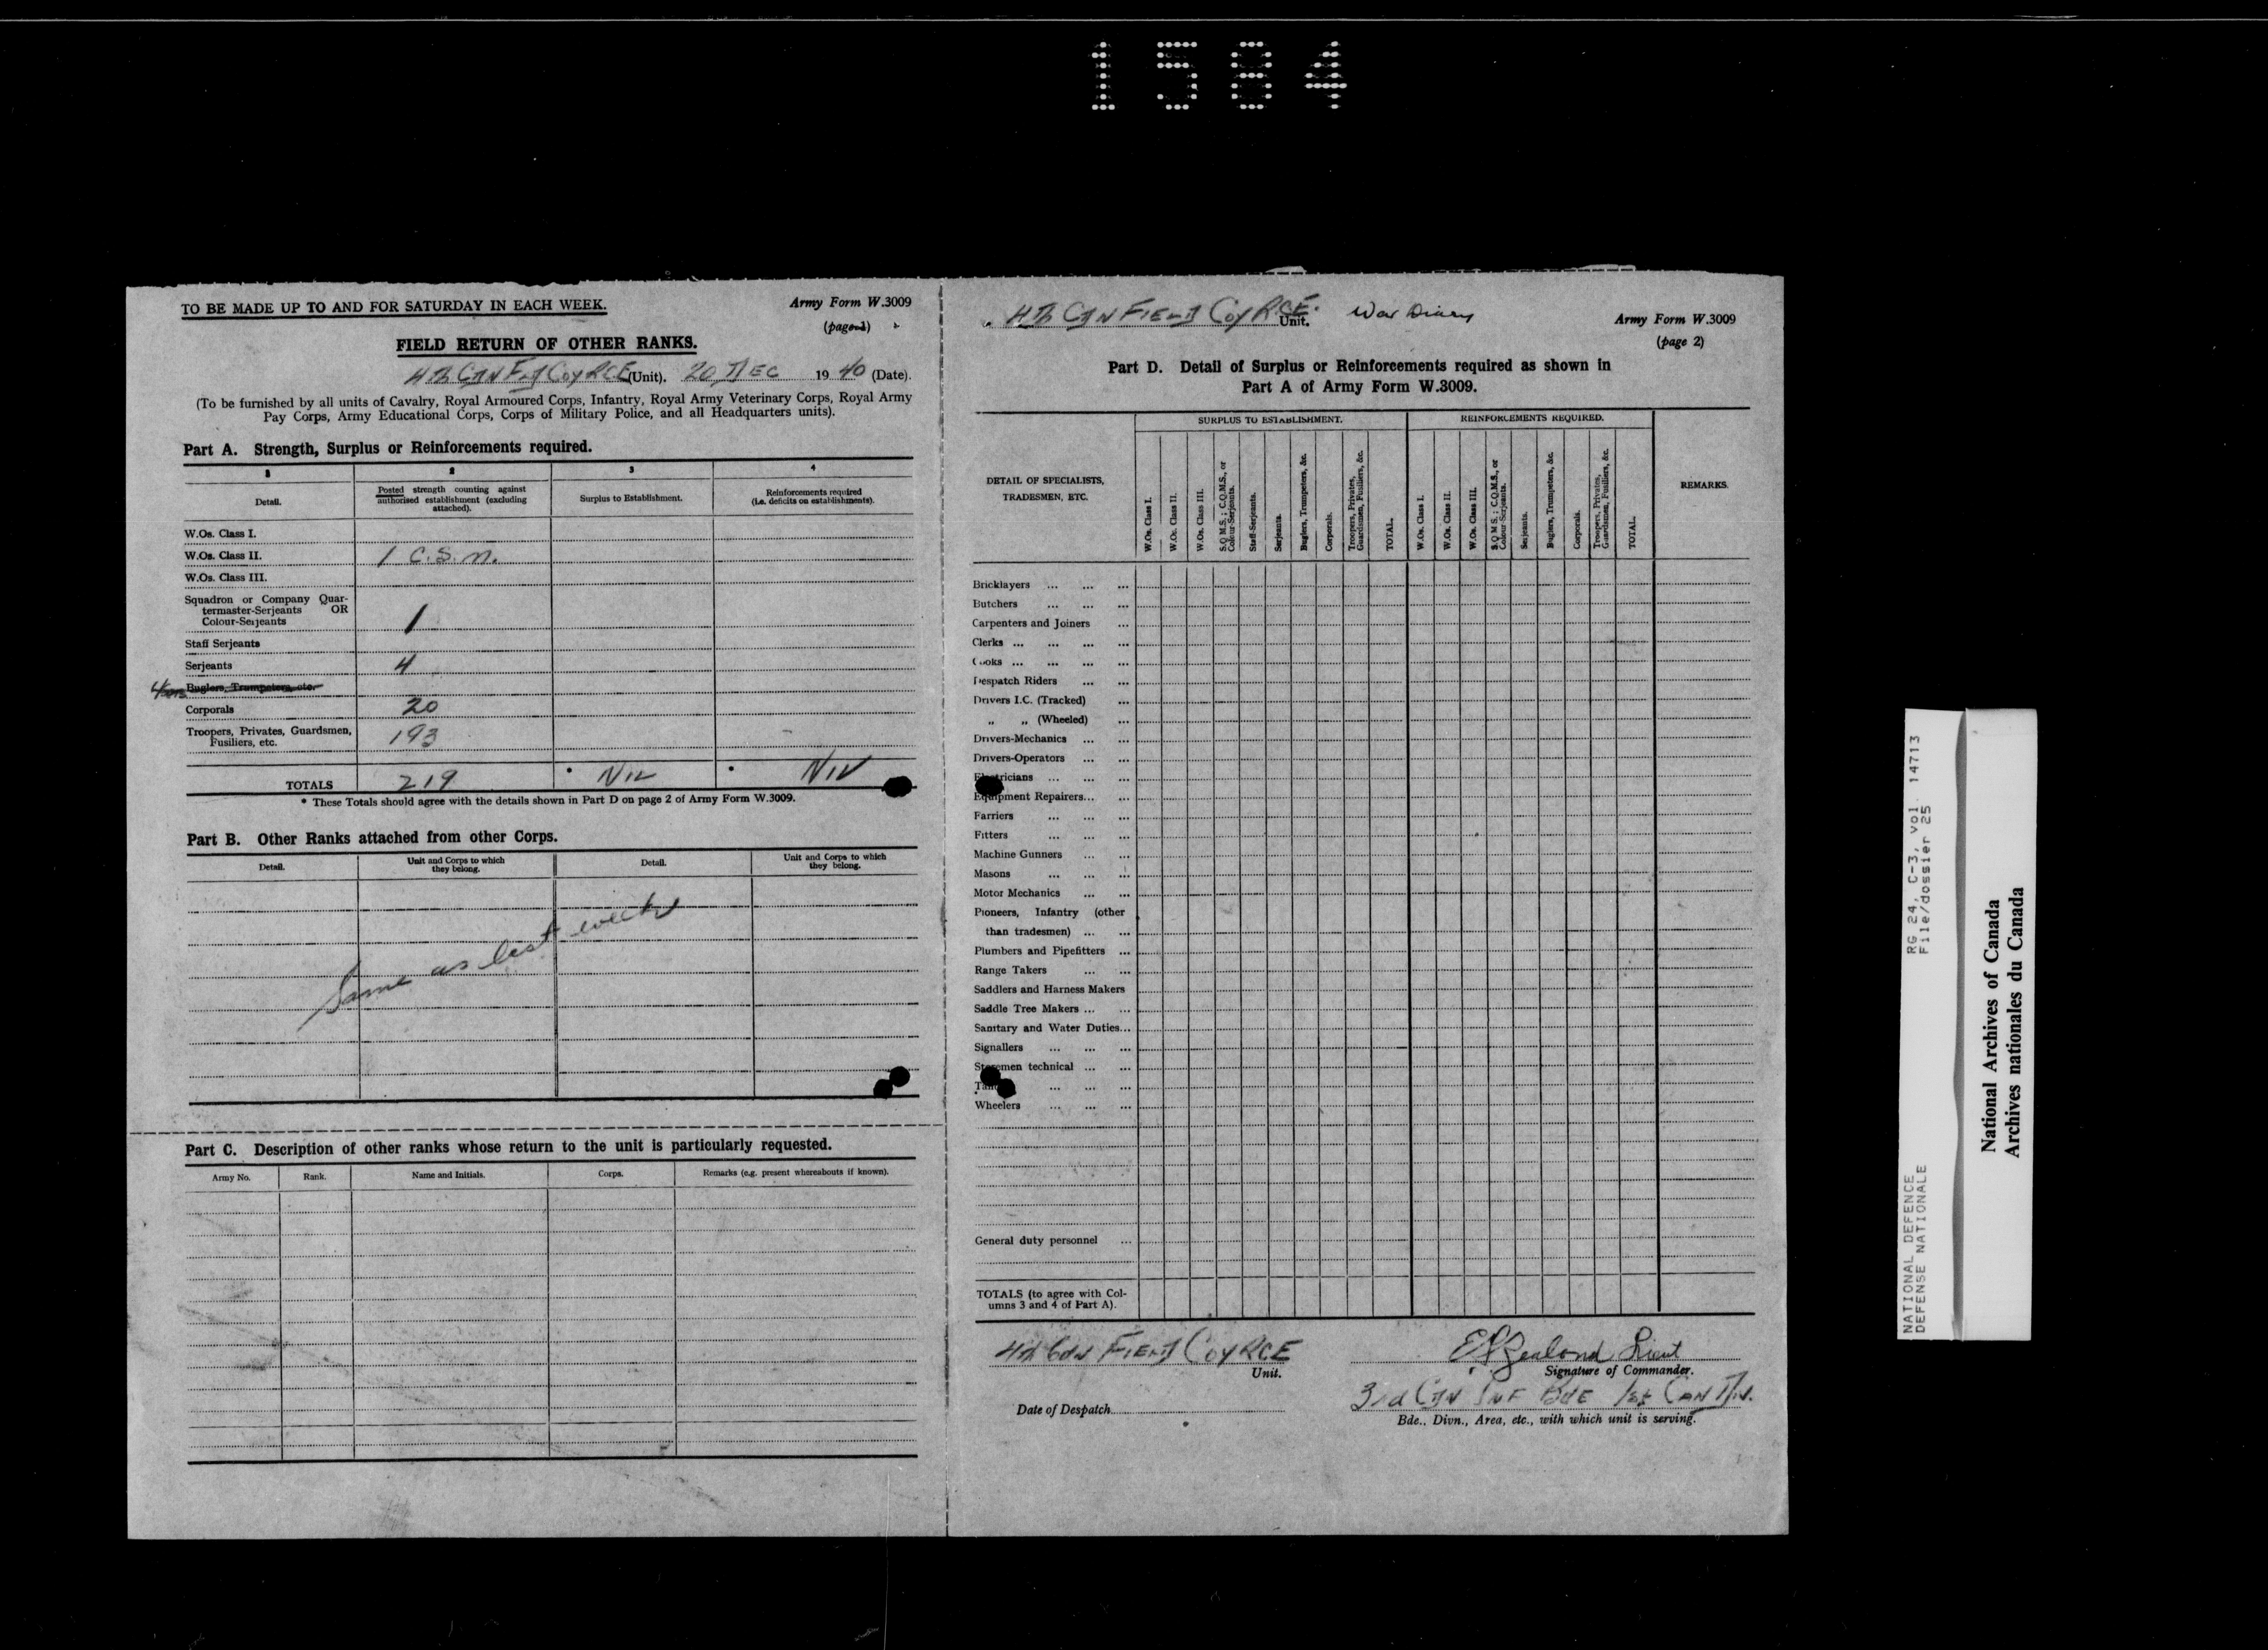 1584
TO BE MADE UP TO AND FOR SATURDAY IN EACH WEEK.
Army Form W.3009
(page 1)
FIELD RETURN OF OTHER RANKS.
4th CDN Fld Coy RCE (Unit). 20 DEC 1940 (Date).
(To be furnished by all units of Cavalry, Royal Armoured Corps, Infantry, Royal Army Veterinary Corps, Royal Army
Pay Corps, Army Educational Corps, Corps of Military Police, and all Headquarters units).
Part A. Strength, Surplus or Reinforcements required.
1 2 3 4
Detail. Posted strength counting against authorised establishment (excluding attached). Surplus to Establishment. Reinforcements required (i.e. deficits on establishments).
W.Os. Class I.
W.Os. Class II. 1 C.S.M.
W.Os. Class III.
Squadron or Company Quar-
termaster-Serjeants OR
Colour-Serjeants 1
Staff Serjeants
Serjeants 4
Buglers, Trumpeters, etc.
Corporals 20
Troopers, Privates, Guardsmen,
Fusiliers, etc. 193
TOTALS 219 * NIL * NIL
* These Totals should agree with the details shown in Part D on page 2 of Army Form W.3009.
Part B. Other Ranks attached from other Corps.
Detail. Unit and Corps to which they belong. Detail. Unit and Corps to which they belong.
Same as last week
Part C. Description of other ranks whose return to the unit is particularly requested.
Army No. Rank. Name and Initials. Corps. Remarks (e.g. present whereabouts if known).
4th CDN FIELD COY RCE. Unit. War Diary
Army Form W.3009
(page 2)
Part D. Detail of Surplus or Reinforcements required as shown in
Part A of Army Form W.3009.
DETAIL OF SPECIALISTS,
TRADESMEN, ETC.
SURPLUS TO ESTABLISHMENT.
REINFORCEMENTS REQUIRED.
REMARKS.
W.Os. Class I.
W.Os. Class II.
W.Os. Class III.
S.Q.M.S.; C.Q.M.S., or Colour-Serjeants.
Staff-Serjeants.
Serjeants.
Buglers, Trumpeters, &c.
Corporals.
Troopers, Privates, Guardsmen, Fusiliers, &c.
TOTAL.
W.Os. Class I.
W.Os. Class II.
W.Os. Class III.
S.Q.M.S.; C.Q.M.S., or Colour-Serjeants.
Serjeants.
Buglers, Trumpeters, &c.
Corporals.
Troopers, Privates, Guardsmen, Fusiliers, &c.
TOTAL.
Bricklayers ... ... ...
Butchers ... ... ...
Carpenters and Joiners ...
Clerks ... ... ... ...
Cooks ... ... ... ...
Despatch Riders ... ...
Drivers I.C. (Tracked) ...
„ „ (Wheeled) ...
Drivers-Mechanics ... ...
Drivers-Operators ... ...
Electricians ... ... ...
Equipment Repairers... ...
Farriers ... ... ...
Fitters ... ... ...
Machine Gunners ... ...
Masons ... ... ...
Motor Mechanics ... ...
Pioneers, Infantry (other
than tradesmen) ... ...
Plumbers and Pipefitters ...
Range Takers ... ...
Saddlers and Harness Makers
Saddle Tree Makers ... ...
Sanitary and Water Duties...
Signallers ... ... ...
Storemen technical ... ...
... ... ...
Wheelers ... ... ...
General duty personnel ...
TOTALS (to agree with Col-
umns 3 and 4 of Part A).
4th Cdn FIELD COY RCE
Unit.
Date of Despatch
Zealand Lieut
Signature of Commander.
3rd CDN INF Bde 1st CAN DIV.
Bde., Divn., Area, etc., with which unit is serving.
NATIONAL DEFENCE RG 24, C-3, vol. 14713
DEFENSE NATIONALE File/dossier 25
National Archives of Canada
Archives nationales du Canada